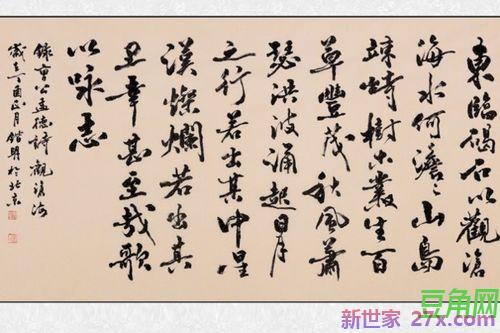 東臨碣石以觀滄
海水何澹々山島
竦峙樹木叢生百
草豐茂秋風蕭
瑟洪波涌起日月
之行若出其中星
漢燦爛若出其
里幸甚至哉歌
以咏志
錄曹公孟德詩觀滄海
丁酉正月於北京
豆角网
新世家 27x.com